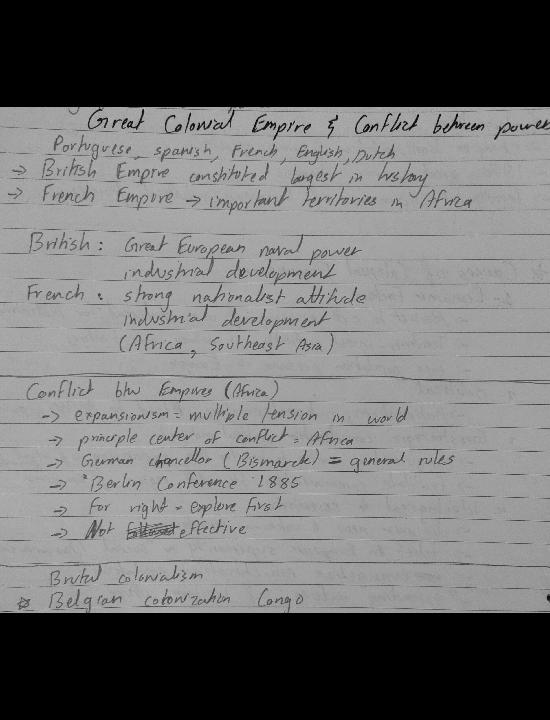 Great Colonial Empire & Conflict between power
Portuguese, spanish, French, English, Dutch
→ British Empire constituted largest in history
→ French Empire → important territories in Africa
British : Great European naval power
industrial development
French : strong nationalist attitude
industrial development
(Africa, Southeast Asia)
Conflict btw Empires (Africa)
→ expansionism = multiple tension in world
→ principle center of conflict = Africa
→ German chancellor (Bismarck) = general rules
→ "Berlin Conference 1885
→ For right = explore First
→ Not effective
Brutal colonialism
Belgian colonization Congo